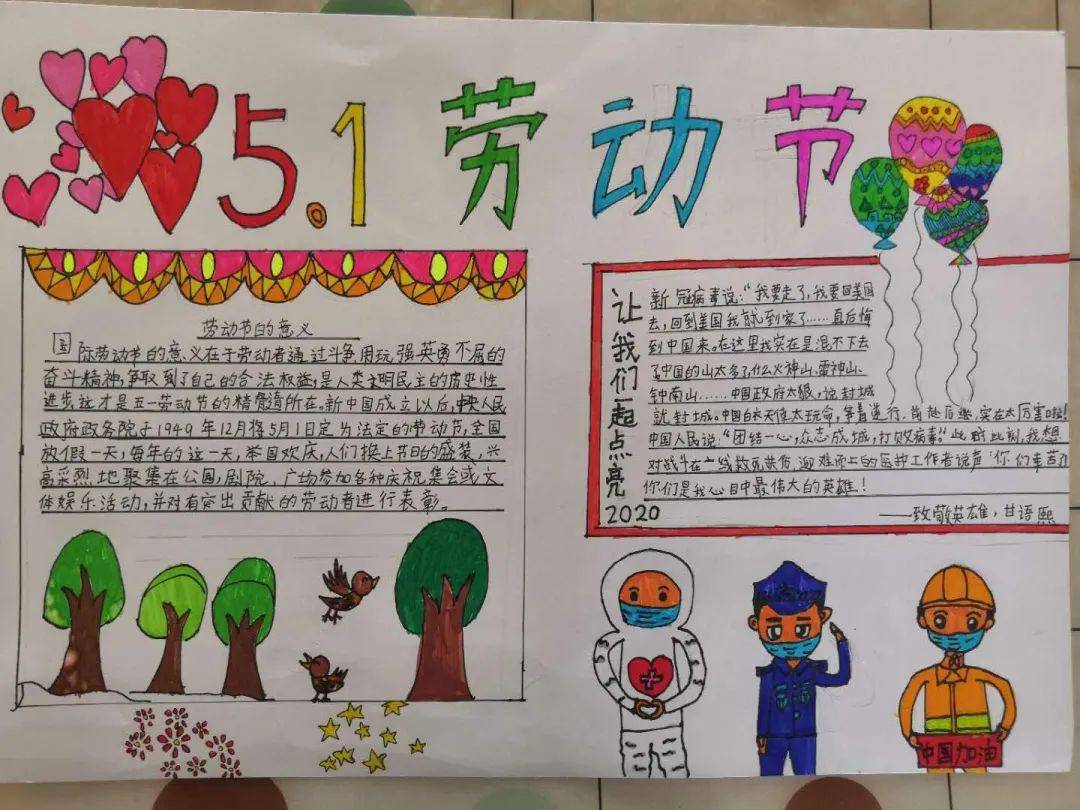 5.1劳动节
劳动节的意义
国际劳动节的意义在于劳动者通过斗争,用玩强英勇不屈的
奋斗精神,争取到了自己的合法权益,是人类文明民主的历史性
进步这才是五一劳动节的精髓道所在。新中国成立以后,中央人民
政府政务院于1949年12月将5月1日定为法定的劳动节,全国
放假一天,每年的这一天,举国欢庆,人们换上节日的盛装,兴
高采烈地聚集在公园,剧院、广场参加各种庆祝集会或文
体娱乐活动,并对有突出贡献的劳动者进行表彰。
让我们一起点亮
2020
新冠病毒说:“我要走了,我要回美国
去,回到美国我就到家了……真后悔
到中国来。在这里我实在是混不下去
了中国的山太多了,什么火神山、雷神山、
钟南山……中国政府太狠,说封城
就封城。中国白衣天使太玩命,争着逆行,实在太厉害啦!
中国人民说:“团结一心,众志成城,打败病毒。”此时此刻,我想
对战斗在一线救死扶伤,迎难而上的医护工作者说声“你们辛苦了
你们是我心目中最伟大的英雄!
——致敬英雄,甘语熙
中国加油